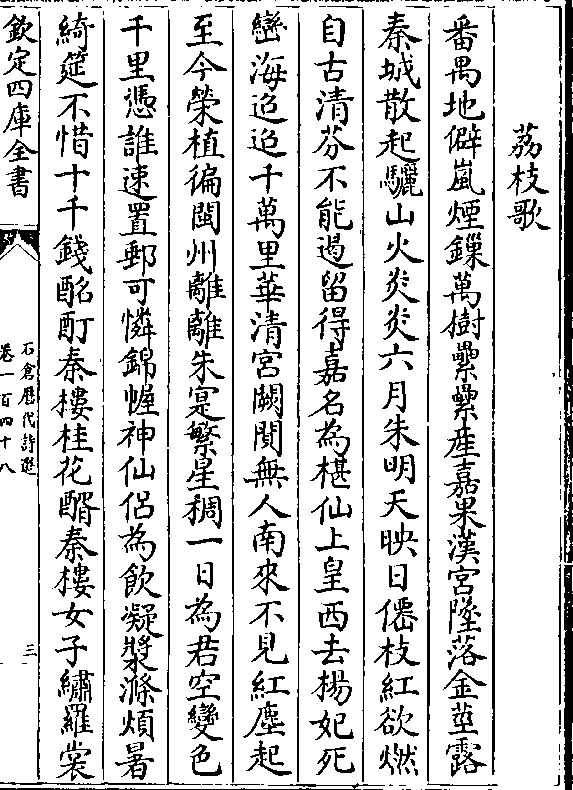 荔枝歌
番禺地僻嵐煙鏁萬樹纍纍產嘉果漢宮墜落金莖露
秦城散起驪山火炎炎六月朱明天映日僊枝紅欲燃
自古清芬不能遏留得嘉名為椹仙上皇西去楊妃死
巒海迢迢千萬里華清宮闕閴無人南來不見紅塵起
至今榮植徧閩州離離朱寔繁星稠一日為君空變色
千里憑誰速置郵可憐錦幄神仙侶為飲凝漿滌煩暑
綺筵不惜十千錢酩酊秦樓桂花醑秦樓女子繡羅裳
欽定四庫全書
石倉歷代詩選
卷一百四十八
三